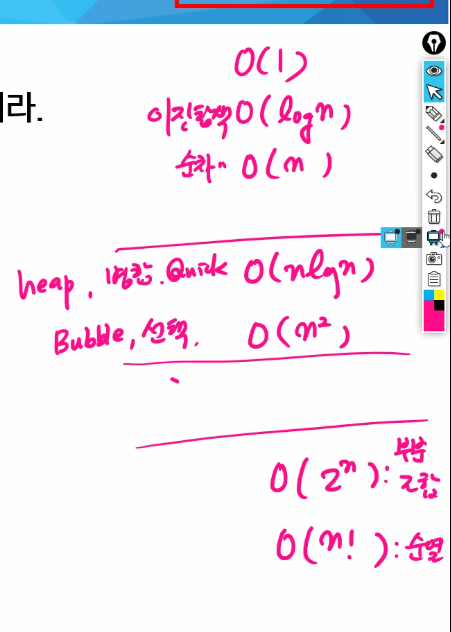 O(1)
ㅣ라.
이진탐색 O(logn)
순차〃 O(n)
heap, 병합. Quick O(nlgn)
Bubble, 선택. O(n²)
O(2ⁿ): 부분
조합
O(n!): 순열